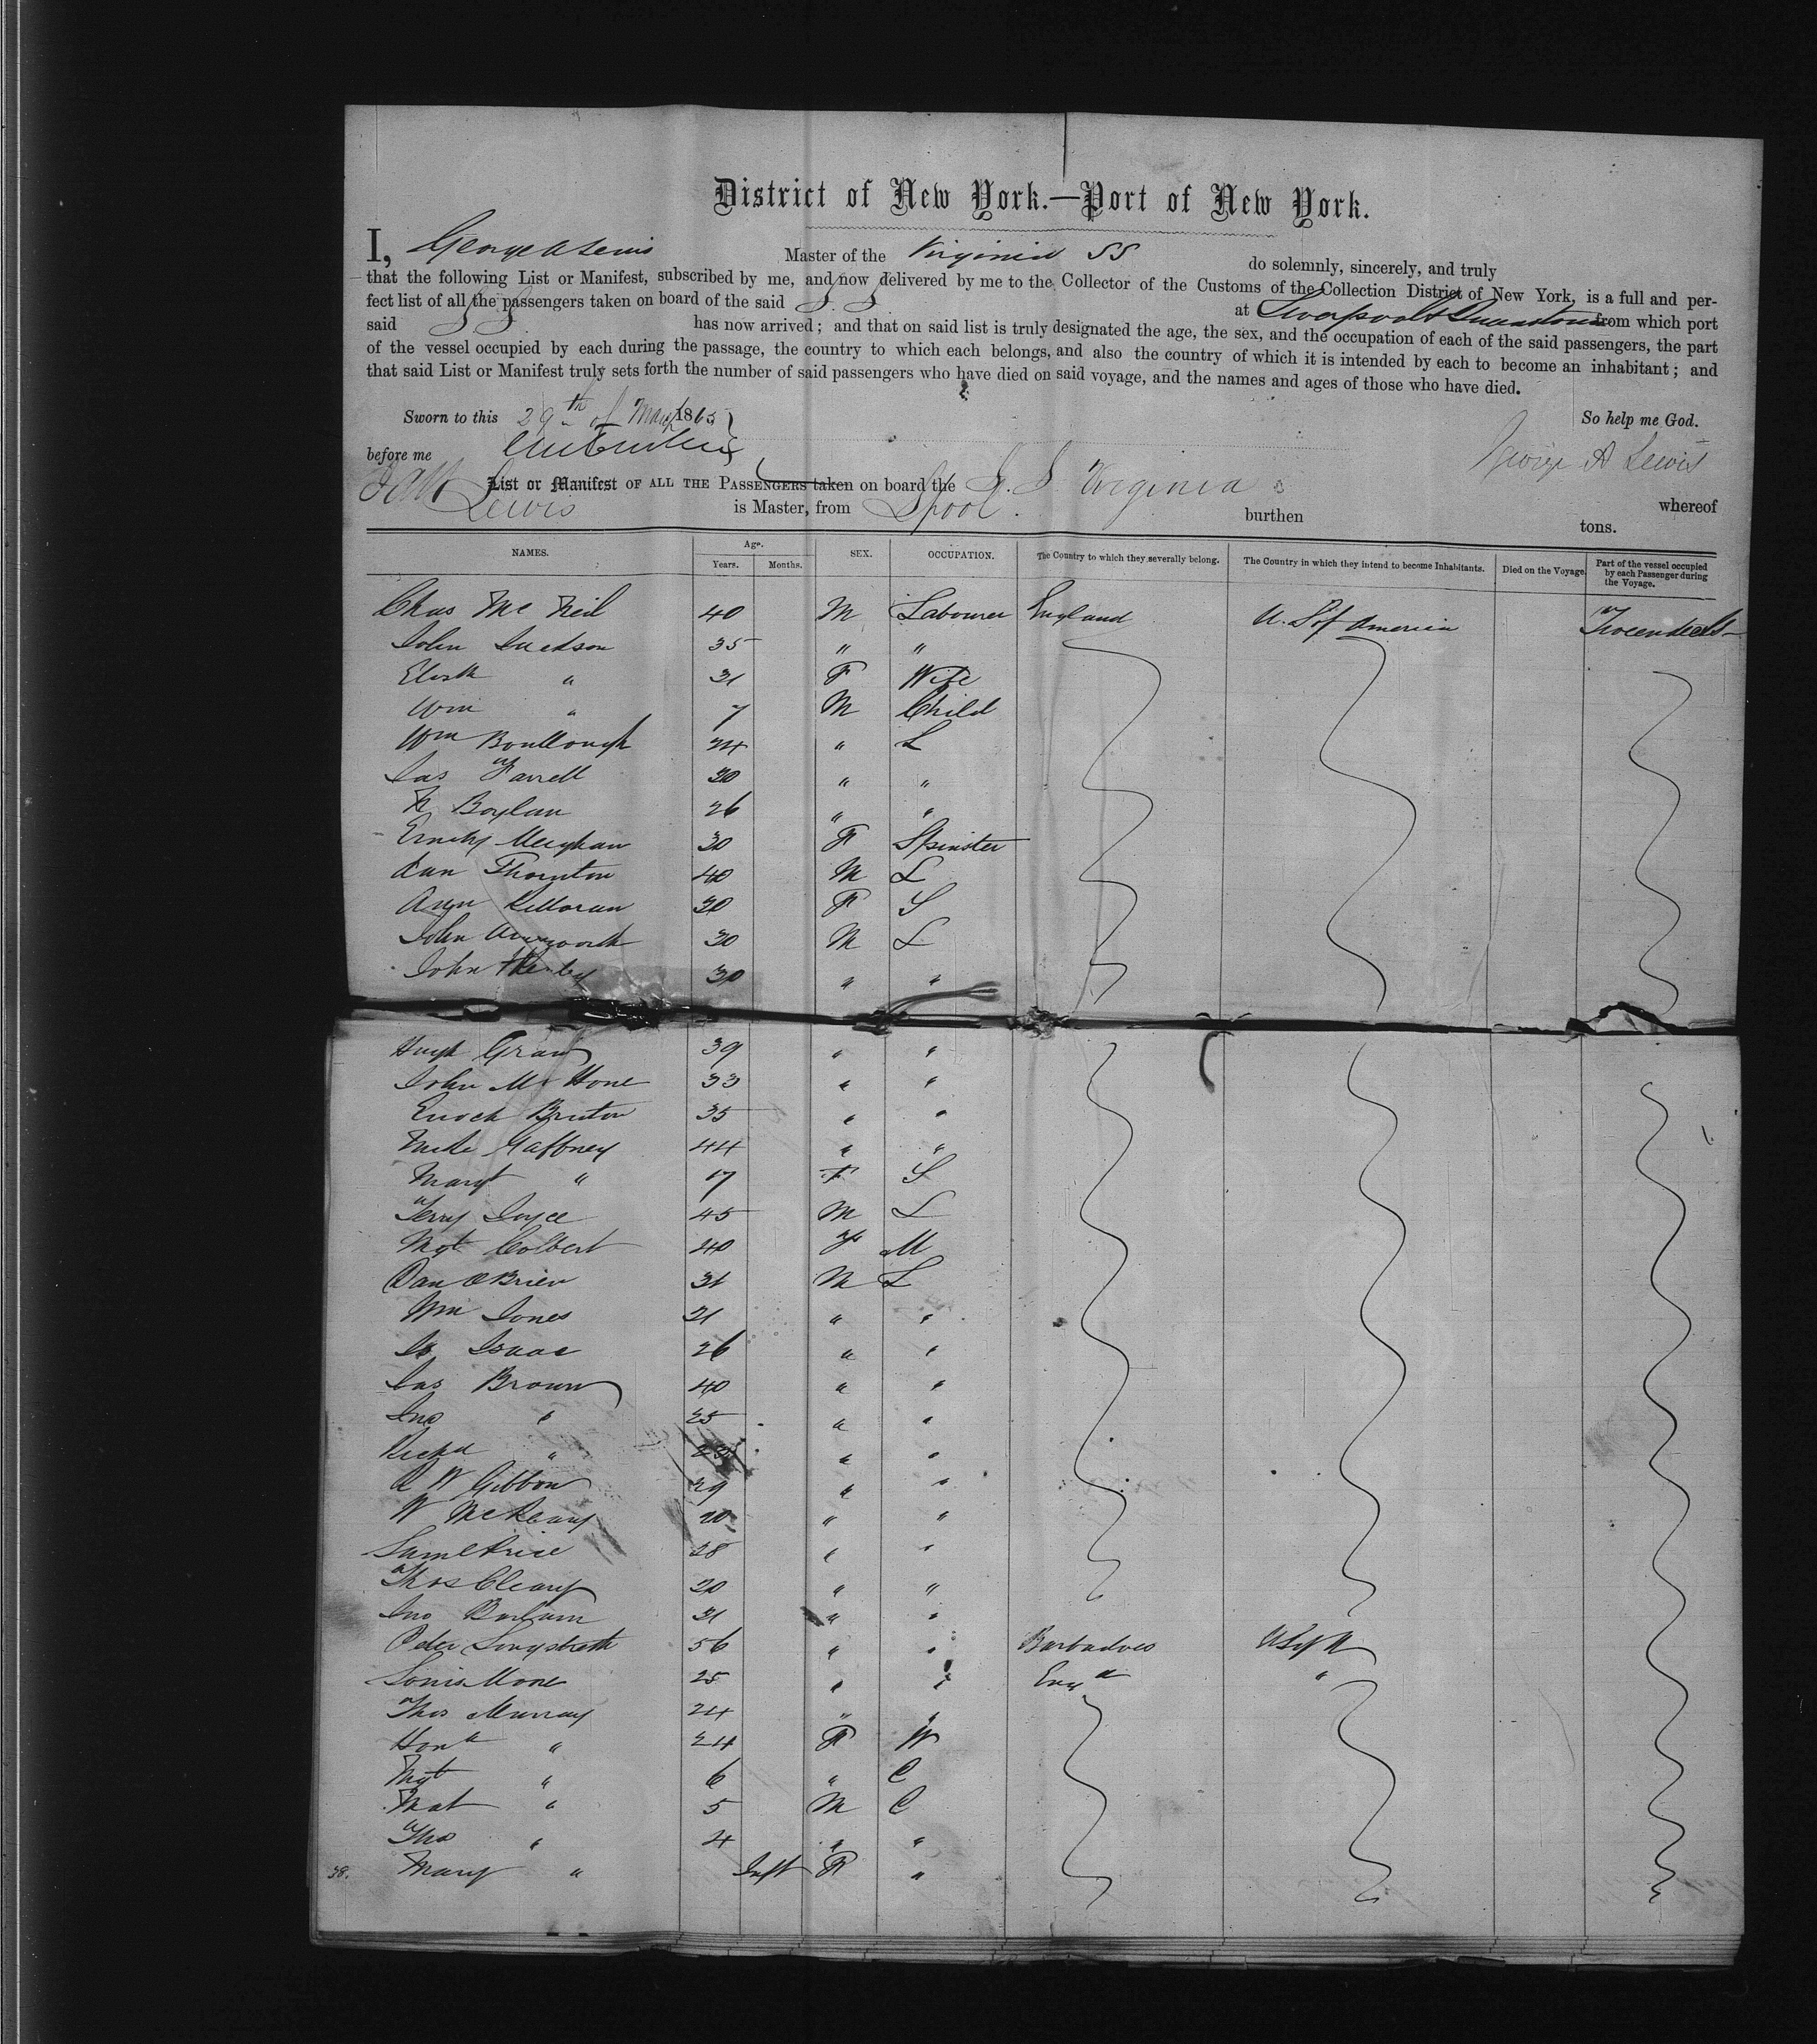 District of New York.—Port of New York.
I, George A Lewis Master of the Virginia SS do solemnly, sincerely, and truly
that the following List or Manifest, subscribed by me, and now delivered by me to the Collector of the Customs of the Collection District of New York, is a full and per-
fect list of all the passengers taken on board of the said S. S. at Liverpool & Queenstown from which port
said S S has now arrived; and that on said list is truly designated the age, the sex, and the occupation of each of the said passengers, the part
of the vessel occupied by each during the passage, the country to which each belongs, and also the country of which it is intended by each to become an inhabitant; and
that said List or Manifest truly sets forth the number of said passengers who have died on said voyage, and the names and ages of those who have died.
Sworn to this 29th of May 1865 So help me God.
before me George A Lewis
List or Manifest OF ALL THE PASSENGERS taken on board the S. S. Virginia whereof
Lewis is Master, from Lpool. burthen tons.
NAMES. Age. Years. Months. SEX. OCCUPATION. The Country to which they severally belong. The Country in which they intend to become Inhabitants. Died on the Voyage. Part of the vessel occupied by each Passenger during the Voyage.
Chas Mc Neil 40 M Labourer England U. S of America
John Jackson 35 " "
Elizth " 31 F Wife
Wm " 7 M Child
Wm Boullough 24 " L
Jas Farrell 20 " "
M Boylan 26 " "
Emily Meighan 30 F Spinster
Thornton 40 M L
Ann Killoran 30 F S
John 30 M L
John 30 " "
Hugh 39 " "
John Mc Hone 33 " "
Enoch Bruton 35 " "
Mich Gaffney 44 " "
Margt " 17 F S
Terry Joyce 45 M L
Mgt Colbert 40 F M
Dan O Brien 31 M L
Wm Jones 21 " "
Isaac 26 " "
Jas Brown 40 " "
Jno " 25 " "
Richd " " "
R W Gibbon 29 " "
W 20 " "
Saml Price 28 " "
Thos Cleary 20 " "
Jno 31 " "
Peter Longstreth 56 " " Barbadoes U S of A
Louis Mone 25 " " Engd "
Thos Murray 24 " "
Honr " 24 F W
Mgt " 6 " C
Mat " 5 M C
Thos " 4 " "
38. Mary " Inft F "